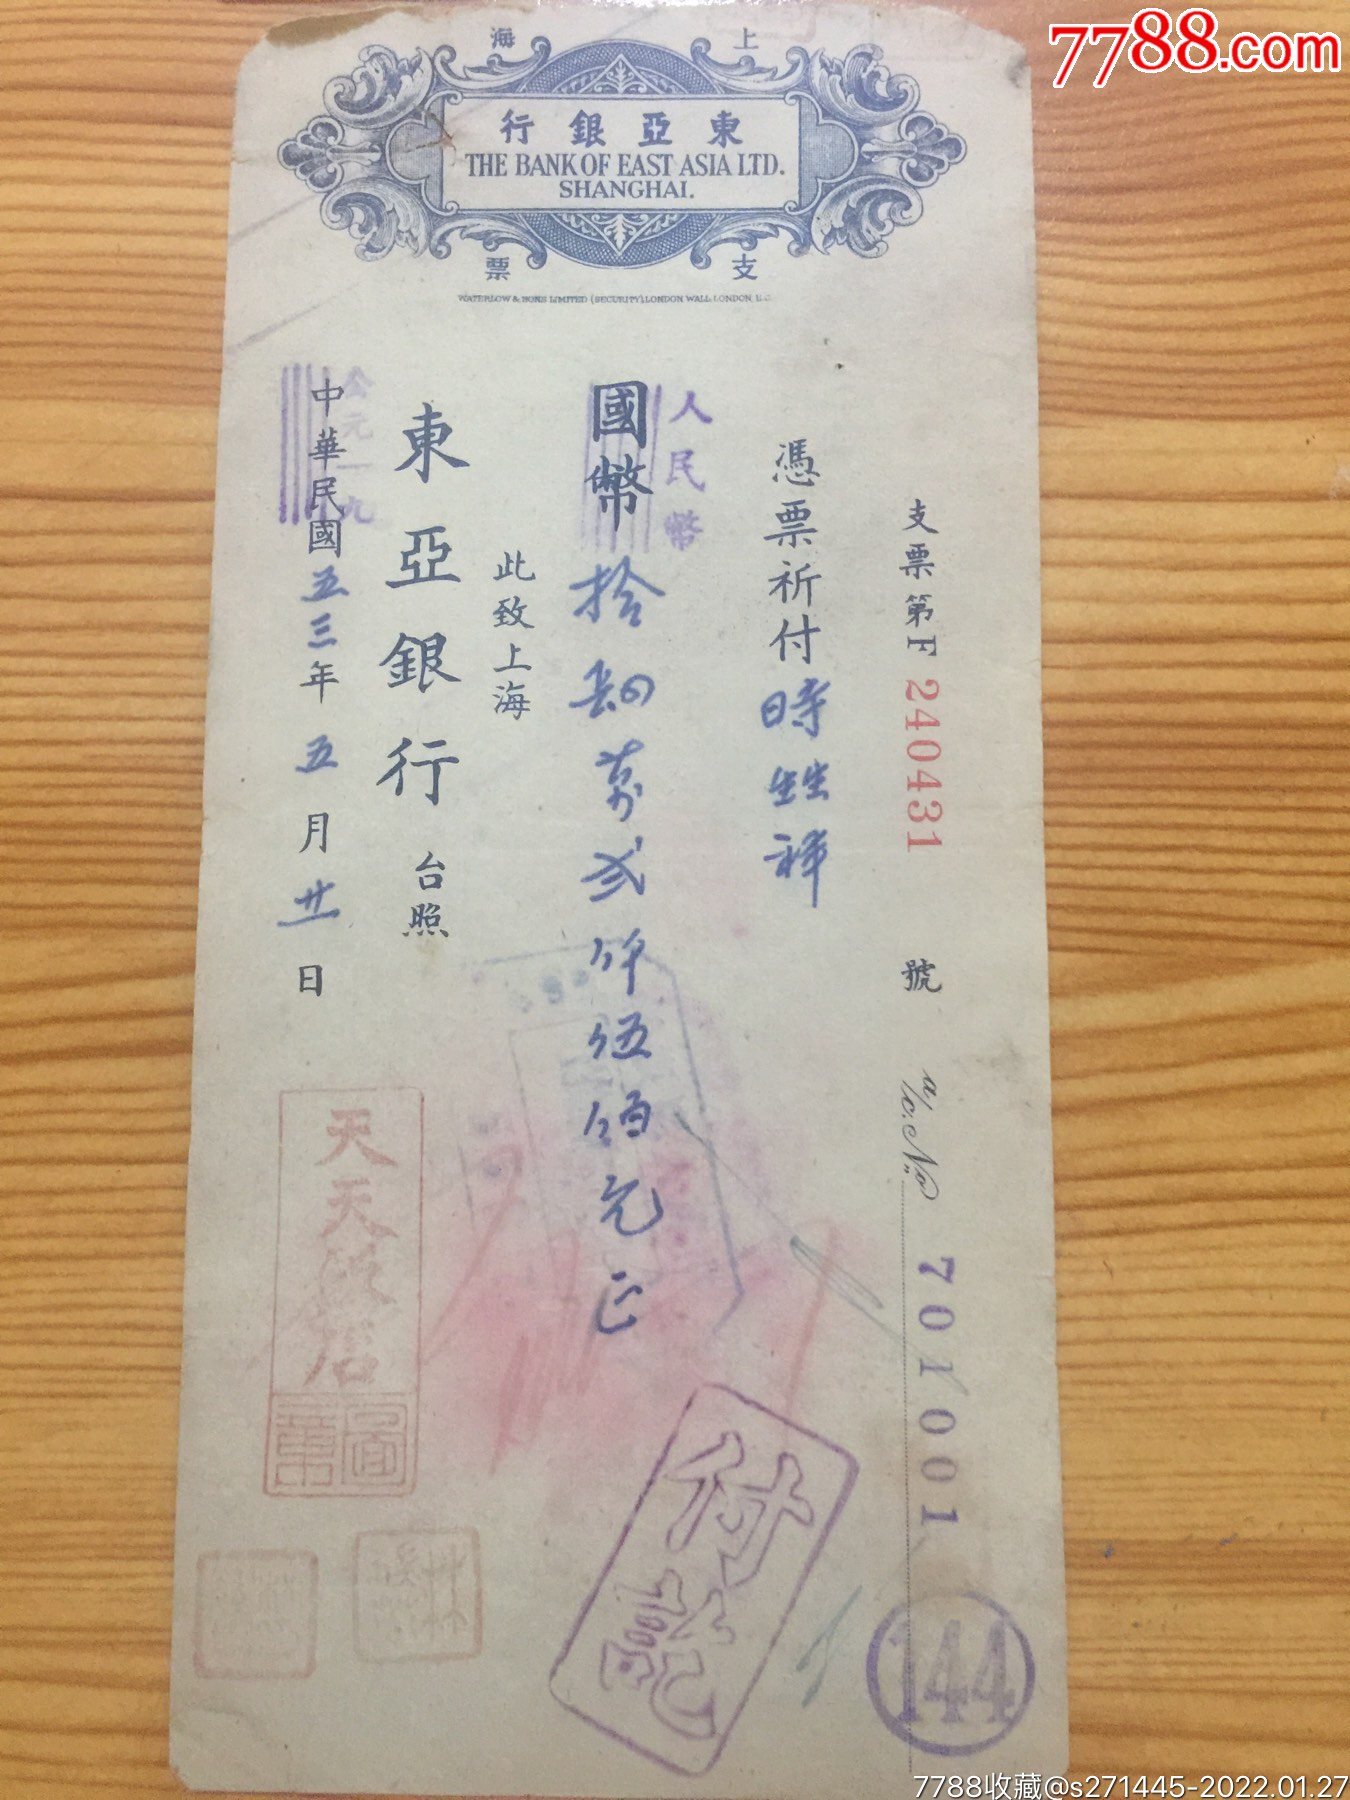 7788.com
上海
東亞銀行
THE BANK OF EAST ASIA LTD.
SHANGHAI.
支票
WATERLOW & SONS LIMITED (SECURITY) LONDON WALL, LONDON, E.C.
支票第F 240431 號
a/c. No 701001
憑票祈付時銼祥
人民幣
國幣拾四萬弍仟伍佰元正
此致上海
東亞銀行台照
公元一九
中華民國五三年五月廿一日
天天飯店
圖章
付訖
144
7788收藏@s271445-2022.01.27